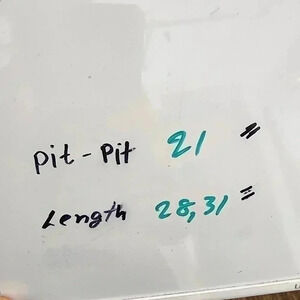 pit - pit 21 "
Length 28,31 "